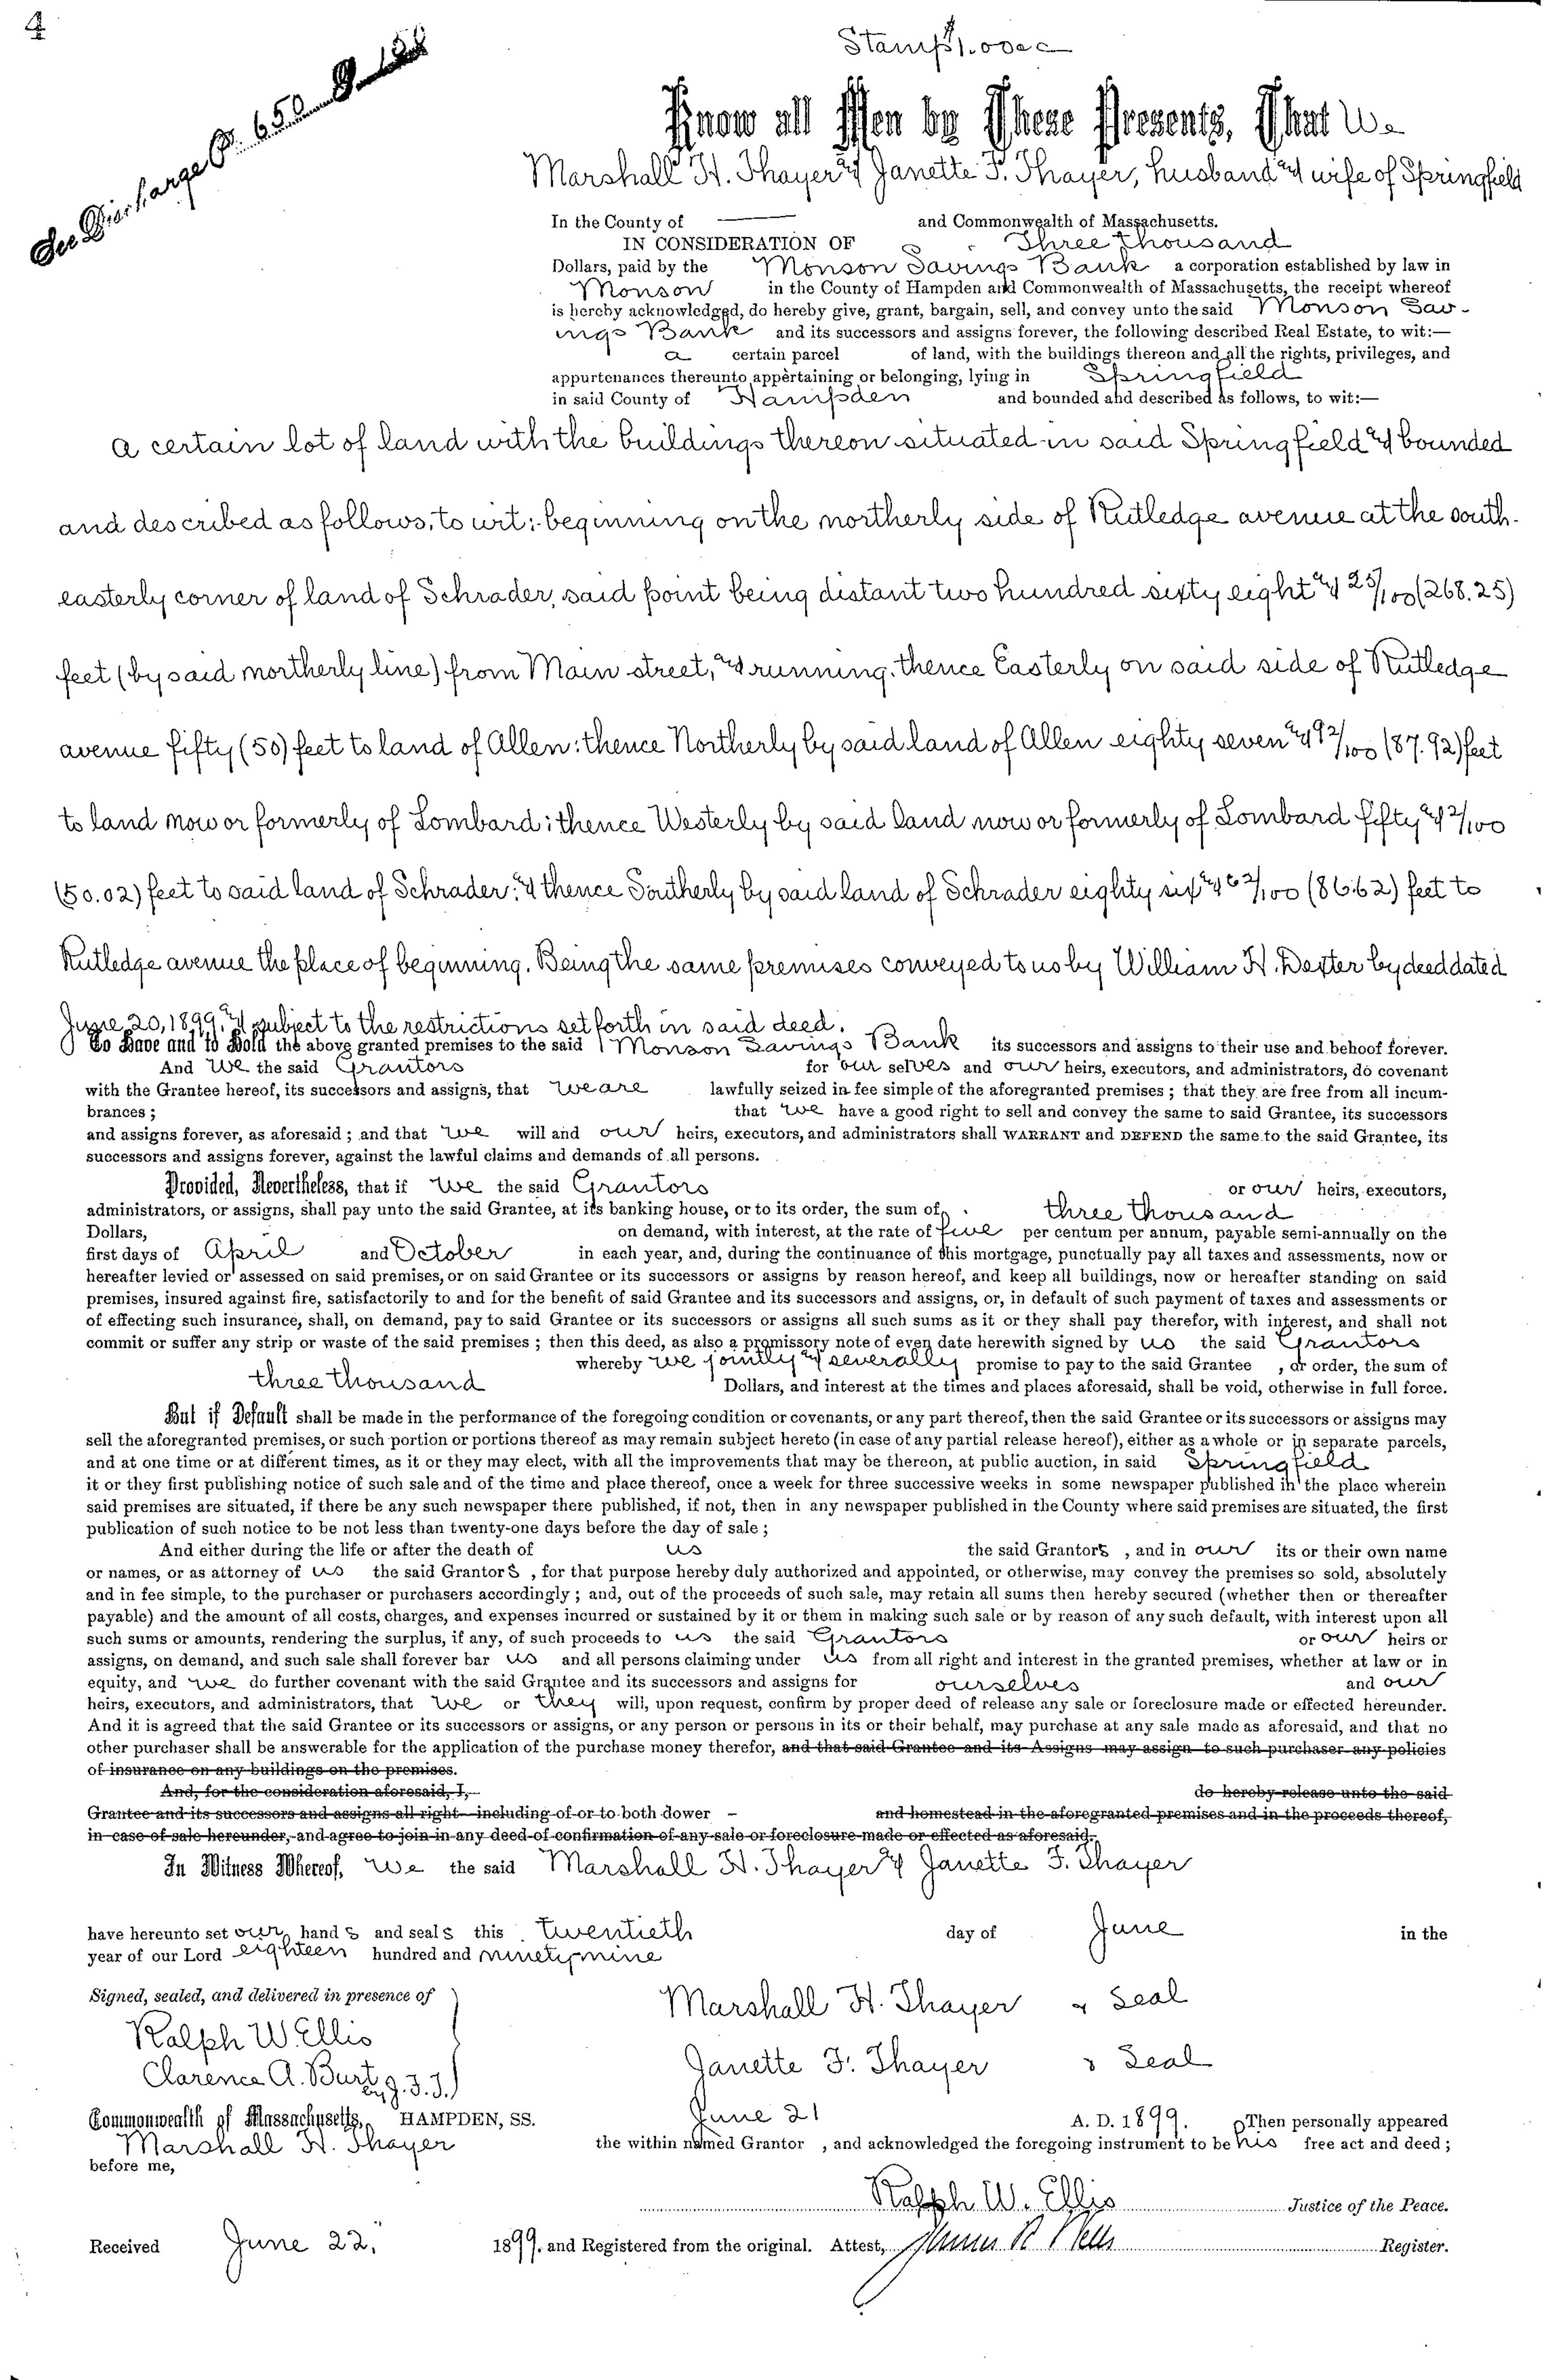 4
Stamp $1.00 c c
See Discharge B. 650 P. 188
Know all Men by These Presents, That We
Marshall H. Thayer & Janette F. Thayer, husband & wife of Springfield
In the County of ——— and Commonwealth of Massachusetts.
IN CONSIDERATION OF Three thousand
Dollars, paid by the Monson Savings Bank a corporation established by law in
Monson in the County of Hampden and Commonwealth of Massachusetts, the receipt whereof
is hereby acknowledged, do hereby give, grant, bargain, sell, and convey unto the said Monson Sav-
ings Bank and its successors and assigns forever, the following described Real Estate, to wit:—
a certain parcel of land, with the buildings thereon and all the rights, privileges, and
appurtenances thereunto appertaining or belonging, lying in Springfield
in said County of Hampden and bounded and described as follows, to wit:—
a certain lot of land with the buildings thereon situated in said Springfield & bounded
and described as follows, to wit:- beginning on the northerly side of Rutledge avenue at the south-
easterly corner of land of Schrader, said point being distant two hundred sixty eight & 25/100 (268.25)
feet (by said northerly line) from Main street, & running thence Easterly on said side of Rutledge
avenue fifty (50) feet to land of Allen: thence Northerly by said land of Allen eighty seven & 92/100 (87.92) feet
to land now or formerly of Lombard: thence Westerly by said land now or formerly of Lombard fifty & 2/100
(50.02) feet to said land of Schrader: & thence Southerly by said land of Schrader eighty six & 62/100 (86.62) feet to
Rutledge avenue the place of beginning. Being the same premises conveyed to us by William H. Dexter by deed dated
June 20, 1899, & subject to the restrictions set forth in said deed.
To Have and to Hold the above granted premises to the said Monson Savings Bank its successors and assigns to their use and behoof forever.
And We the said Grantors for our selves and our heirs, executors, and administrators, do covenant
with the Grantee hereof, its successors and assigns, that we are lawfully seized in fee simple of the aforegranted premises; that they are free from all incum-
brances; that we have a good right to sell and convey the same to said Grantee, its successors
and assigns forever, as aforesaid; and that we will and our heirs, executors, and administrators shall WARRANT and DEFEND the same to the said Grantee, its
successors and assigns forever, against the lawful claims and demands of all persons.
Provided, Nevertheless, that if we the said Grantors or our heirs, executors,
administrators, or assigns, shall pay unto the said Grantee, at its banking house, or to its order, the sum of three thousand
Dollars, on demand, with interest, at the rate of five per centum per annum, payable semi-annually on the
first days of April and October in each year, and, during the continuance of this mortgage, punctually pay all taxes and assessments, now or
hereafter levied or assessed on said premises, or on said Grantee or its successors or assigns by reason hereof, and keep all buildings, now or hereafter standing on said
premises, insured against fire, satisfactorily to and for the benefit of said Grantee and its successors and assigns, or, in default of such payment of taxes and assessments or
of effecting such insurance, shall, on demand, pay to said Grantee or its successors or assigns all such sums as it or they shall pay therefor, with interest, and shall not
commit or suffer any strip or waste of the said premises; then this deed, as also a promissory note of even date herewith signed by us the said Grantors
whereby we jointly & severally promise to pay to the said Grantee , or order, the sum of
three thousand Dollars, and interest at the times and places aforesaid, shall be void, otherwise in full force.
But if Default shall be made in the performance of the foregoing condition or covenants, or any part thereof, then the said Grantee or its successors or assigns may
sell the aforegranted premises, or such portion or portions thereof as may remain subject hereto (in case of any partial release hereof), either as a whole or in separate parcels,
and at one time or at different times, as it or they may elect, with all the improvements that may be thereon, at public auction, in said Springfield
it or they first publishing notice of such sale and of the time and place thereof, once a week for three successive weeks in some newspaper published in the place wherein
said premises are situated, if there be any such newspaper there published, if not, then in any newspaper published in the County where said premises are situated, the first
publication of such notice to be not less than twenty-one days before the day of sale;
And either during the life or after the death of us the said Grantors , and in our its or their own name
or names, or as attorney of us the said Grantors , for that purpose hereby duly authorized and appointed, or otherwise, may convey the premises so sold, absolutely
and in fee simple, to the purchaser or purchasers accordingly; and, out of the proceeds of such sale, may retain all sums then hereby secured (whether then or thereafter
payable) and the amount of all costs, charges, and expenses incurred or sustained by it or them in making such sale or by reason of any such default, with interest upon all
such sums or amounts, rendering the surplus, if any, of such proceeds to us the said Grantors or our heirs or
assigns, on demand, and such sale shall forever bar us and all persons claiming under us from all right and interest in the granted premises, whether at law or in
equity, and we do further covenant with the said Grantee and its successors and assigns for ourselves and our
heirs, executors, and administrators, that we or they will, upon request, confirm by proper deed of release any sale or foreclosure made or effected hereunder.
And it is agreed that the said Grantee or its successors or assigns, or any person or persons in its or their behalf, may purchase at any sale made as aforesaid, and that no
other purchaser shall be answerable for the application of the purchase money therefor, and that said Grantee and its Assigns may assign to such purchaser any policies
of insurance on any buildings on the premises.
And, for the consideration aforesaid, I, do hereby release unto the said
Grantee and its successors and assigns all right including of or to both dower – and homestead in the aforegranted premises and in the proceeds thereof,
in case of sale hereunder, and agree to join in any deed of confirmation of any sale or foreclosure made or effected as aforesaid.
In Witness Whereof, we the said Marshall H. Thayer & Janette F. Thayer
have hereunto set our hands and seals this twentieth day of June in the
year of our Lord eighteen hundred and ninety nine
Signed, sealed, and delivered in presence of
Marshall H. Thayer & Seal
Ralph W. Ellis
Janette F. Thayer & Seal
Clarence A. Burt
by J. F. T.
Commonwealth of Massachusetts, HAMPDEN, SS. June 21 A. D. 1899. Then personally appeared
Marshall H. Thayer the within named Grantor , and acknowledged the foregoing instrument to be his free act and deed;
before me,
Ralph W. Ellis Justice of the Peace.
Received June 22, 1899. and Registered from the original. Attest, James R Wells Register.